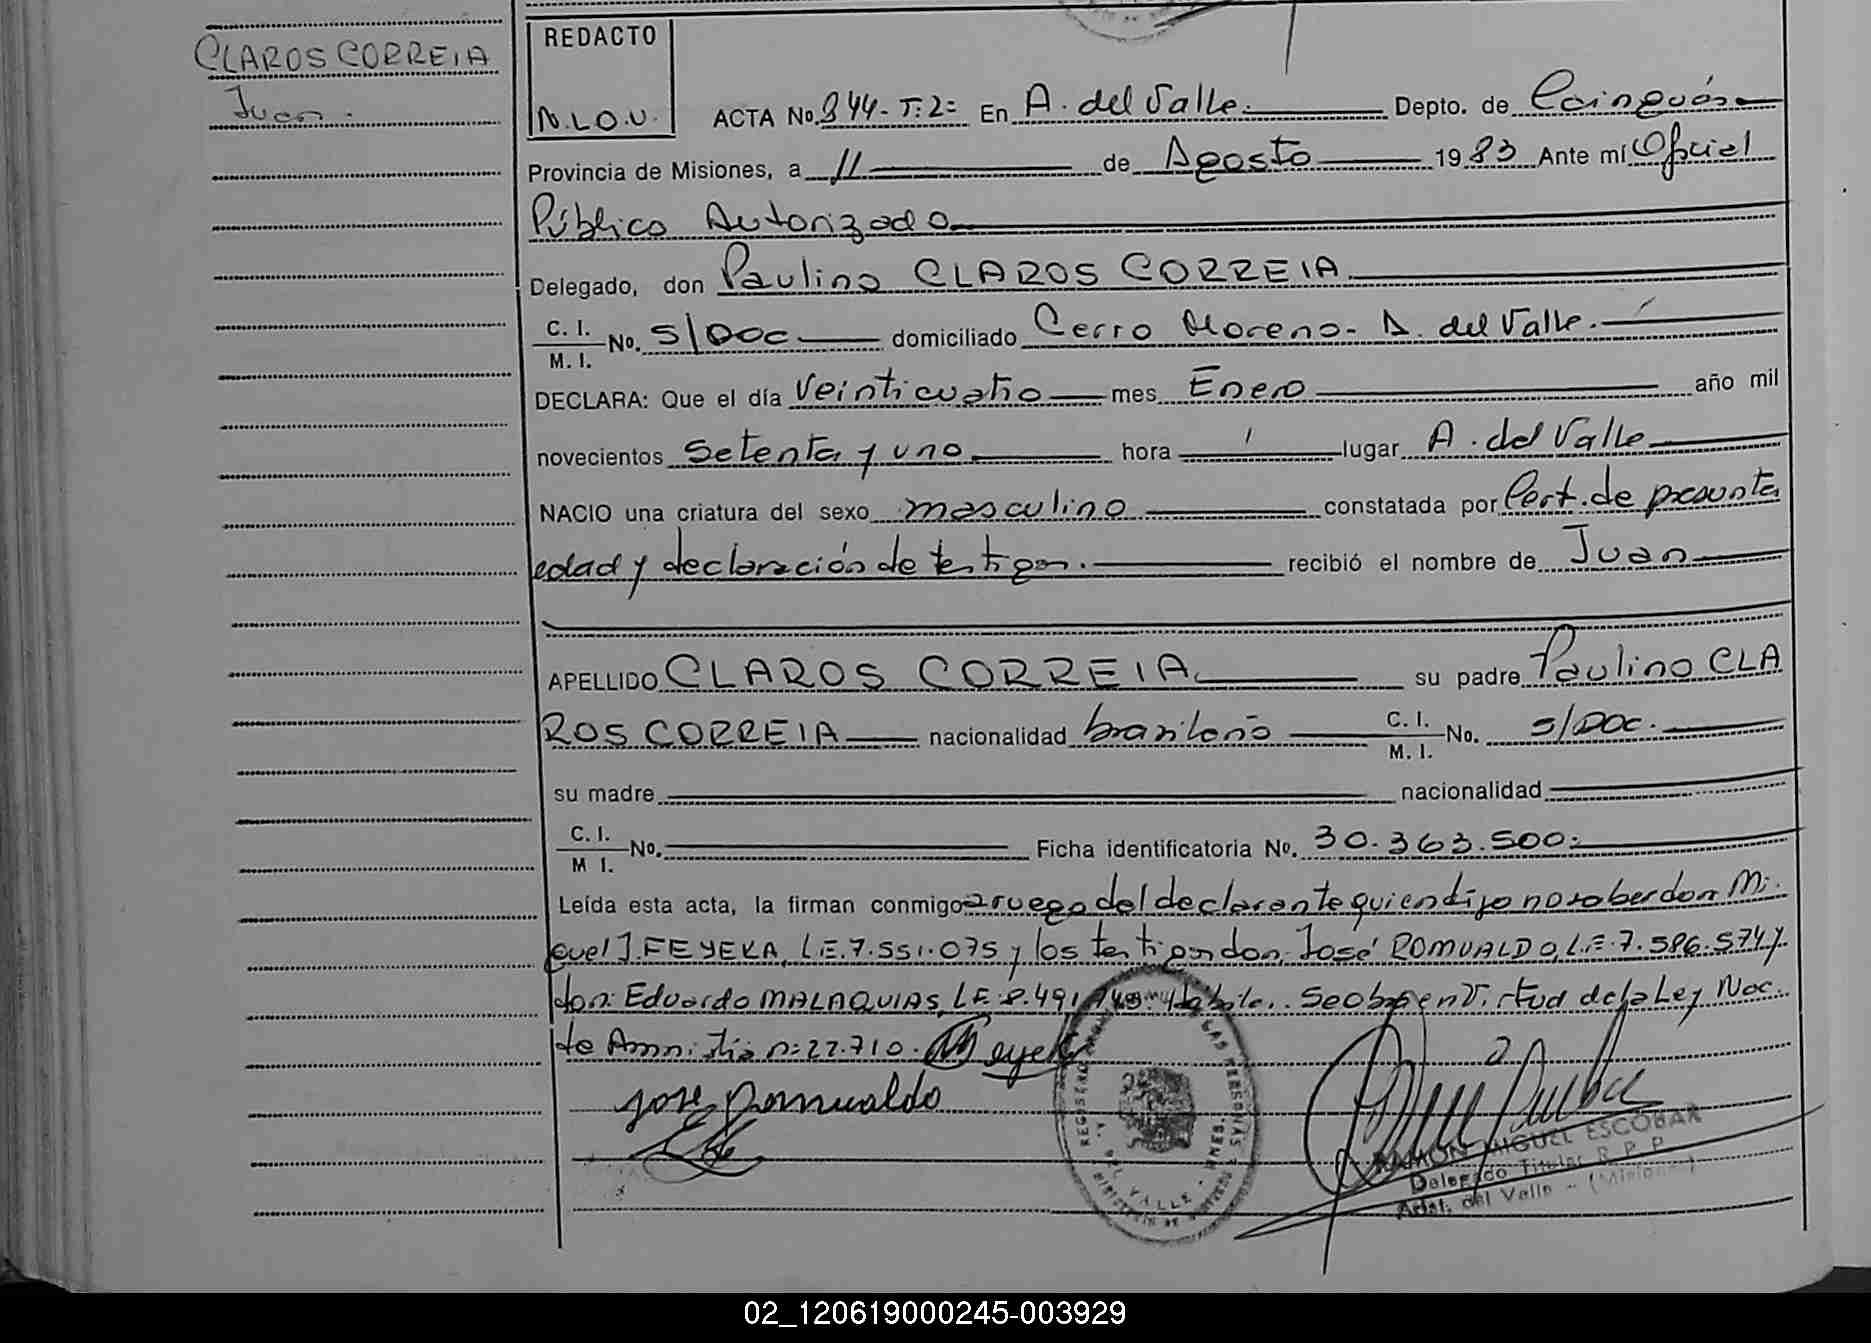 CLAROS CORREIA
Juan.
REDACTO
N.L.O.V.
ACTA No. 844-T:2: En A. del Valle. Depto. de Cainguás
Provincia de Misiones, a 11 de Agosto 1983 Ante mí Oficial
Público Autorizado
Delegado, don Paulino CLAROS CORREIA
C. I. M. I. No. S/Doc. domiciliado Cerro Moreno - A. del Valle.
DECLARA: Que el día Veinticuatro mes Enero año mil
novecientos Setenta y uno hora lugar A. del Valle
NACIO una criatura del sexo masculino constatada por Cert. de presunta
edad y declaración de testigos. recibió el nombre de Juan
APELLIDO CLAROS CORREIA su padre Paulino CLA
ROS CORREIA nacionalidad brasileño C. I. M. I. No. S/Doc.
su madre nacionalidad
C. I. M I. No. Ficha identificatoria No. 30.363.500:
Leída esta acta, la firman conmigo a ruego del declarante quien dijo no saber don Mi
guel J. FEYEKA, L.E. 7.551.075 y los testigos don: José ROMUALDO, L.E. 7.586.574 y
don: Eduardo MALAQUIAS, L.E. 8.491. Se obs en virtud de la Ley Nac.
de Amnistía n: 22.710.
José Romualdo
RAMON MIGUEL ESCOBAR
Delegado Titular R. P. P.
Arist. del Valle - (Misiones)
02_120619000245-003929